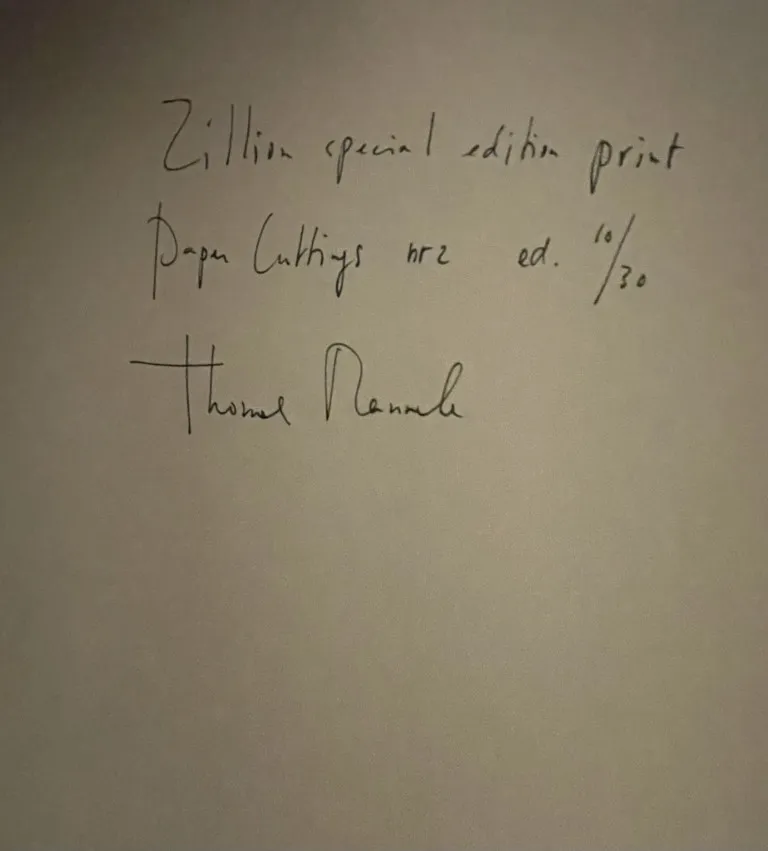 Zillion special edition print
Paper Cuttings nr2 ed. 10/30
Thomas